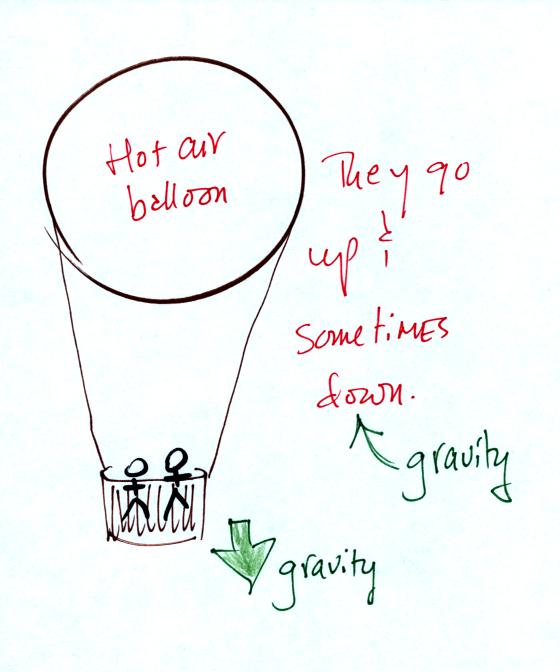 Hot air
balloon
They go
up &
sometimes
down.
gravity
gravity